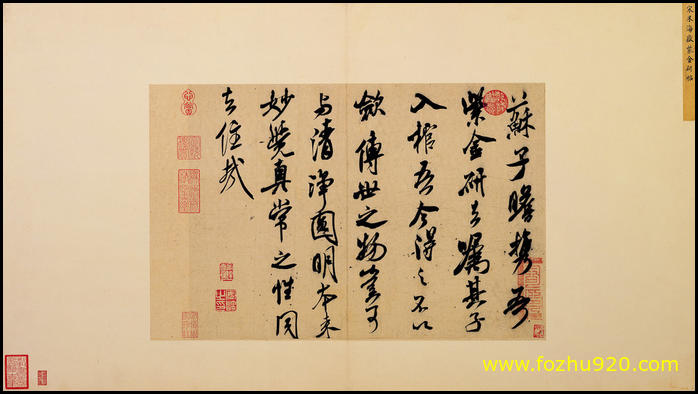 宋米海嶽紫金研帖
蘇子瞻携吾
紫金研去嘱其子
入棺吾今得之不以
斂傳世之物豈可
与清淨圓明本来
妙覺真常之性同
去住哉
www.fozhu920.com